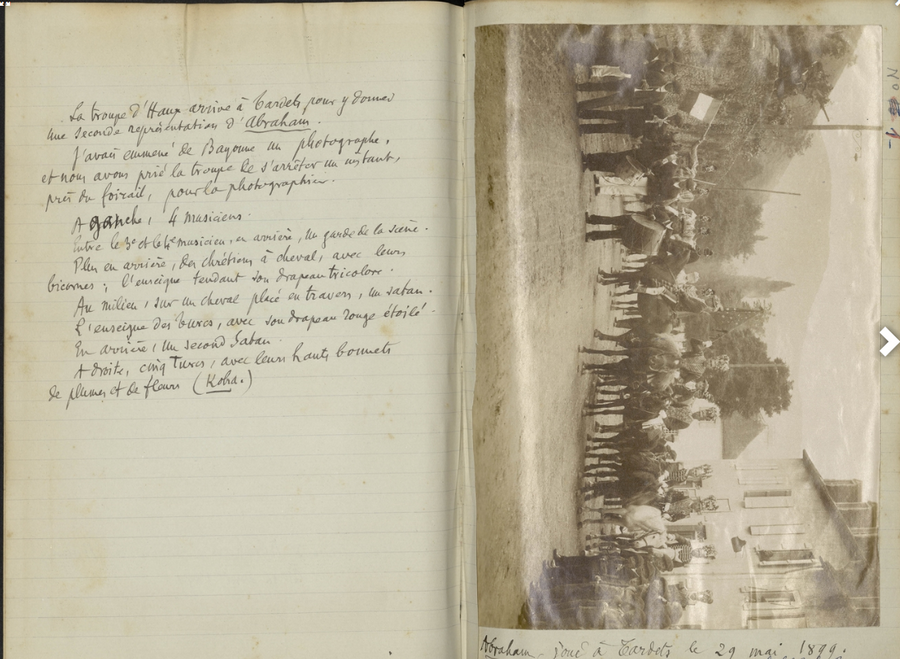 La troupe d'Haux arrive à Tardets pour y donner
une seconde représentation d'Abraham.
J'avais emmené de Bayonne un photographe,
et nous avons prié la troupe de s'arrêter un instant,
près du foirail, pour la photographier.
A gauche, 4 musiciens.
Entre le 3e et le 4e musicien, en arrière, un garde de la scène.
Plus en arrière, des chrétiens à cheval, avec leurs
bicornes ; l'enseigne tendant son drapeau tricolore.
Au milieu, sur un cheval placé en travers, un satan.
L'enseigne des turcs, avec son drapeau rouge étoilé.
En arrière, un second Satan.
A droite, cinq Turcs, avec leurs hauts bonnets
de plumes et de fleurs (Koha.)
Abraham - joué à Tardets le 29 mai 1899.